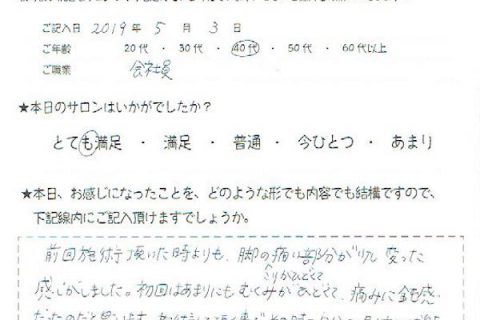 ご記入日 2019年 5月 3日
ご年齢 20代・30代・40代・50代・60代以上
ご職業 会社員
★本日のサロンはいかがでしたか？
とても満足 ・ 満足 ・ 普通 ・ 今ひとつ ・ あまり
★本日、お感じになったことを、どのような形でも内容でも結構ですので、
下記線内にご記入頂けますでしょうか。
前回施術頂いた時よりも、脚の痛い部分が 変った
感じがしました。初回はあまりにもむくみがひどくて、痛みに鈍感
だったのだと思います。